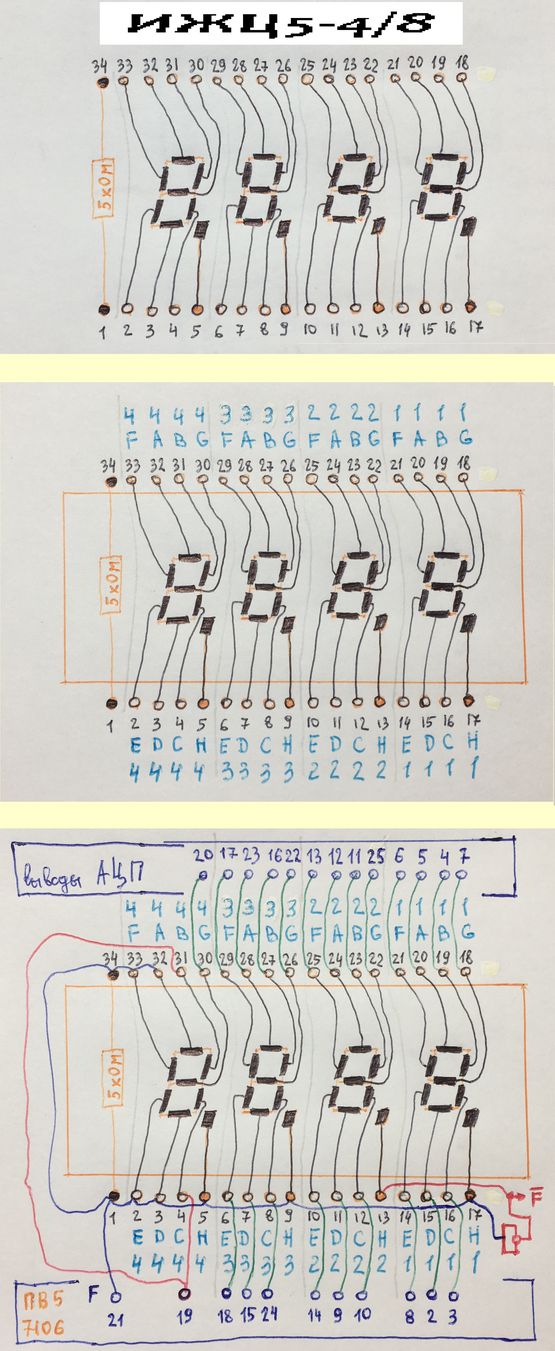 ИЖЦ5-4/8
34 33 32 31 30 29 28 27 26 25 24 23 22 21 20 19 18
5 x ОМ
1 2 3 4 5 6 7 8 9 10 11 12 13 14 15 16 17
4 4 4 4 3 3 3 3 2 2 2 2 1 1 1 1
F A B G F A B G F A B G F A B G
34 33 32 31 30 29 28 27 26 25 24 23 22 21 20 19 18
5 x ОМ
1 2 3 4 5 6 7 8 9 10 11 12 13 14 15 16 17
E D C H E D C H E D C H E D C H
4 4 4 4 3 3 3 3 2 2 2 2 1 1 1 1
20 17 23 16 22 13 12 11 25 6 5 4 7
выводы АЦП
4 4 4 4 3 3 3 3 2 2 2 2 1 1 1 1
F A B G F A B G F A B G F A B G
34 33 32 31 30 29 28 27 26 25 24 23 22 21 20 19 18
5 x ОМ
F
1 2 3 4 5 6 7 8 9 10 11 12 13 14 15 16 17
E D C H E D C H E D C H E D C H
4 4 4 4 3 3 3 3 2 2 2 2 1 1 1 1
ПВ5 F
7106 21 19 18 15 24 14 9 10 8 2 3